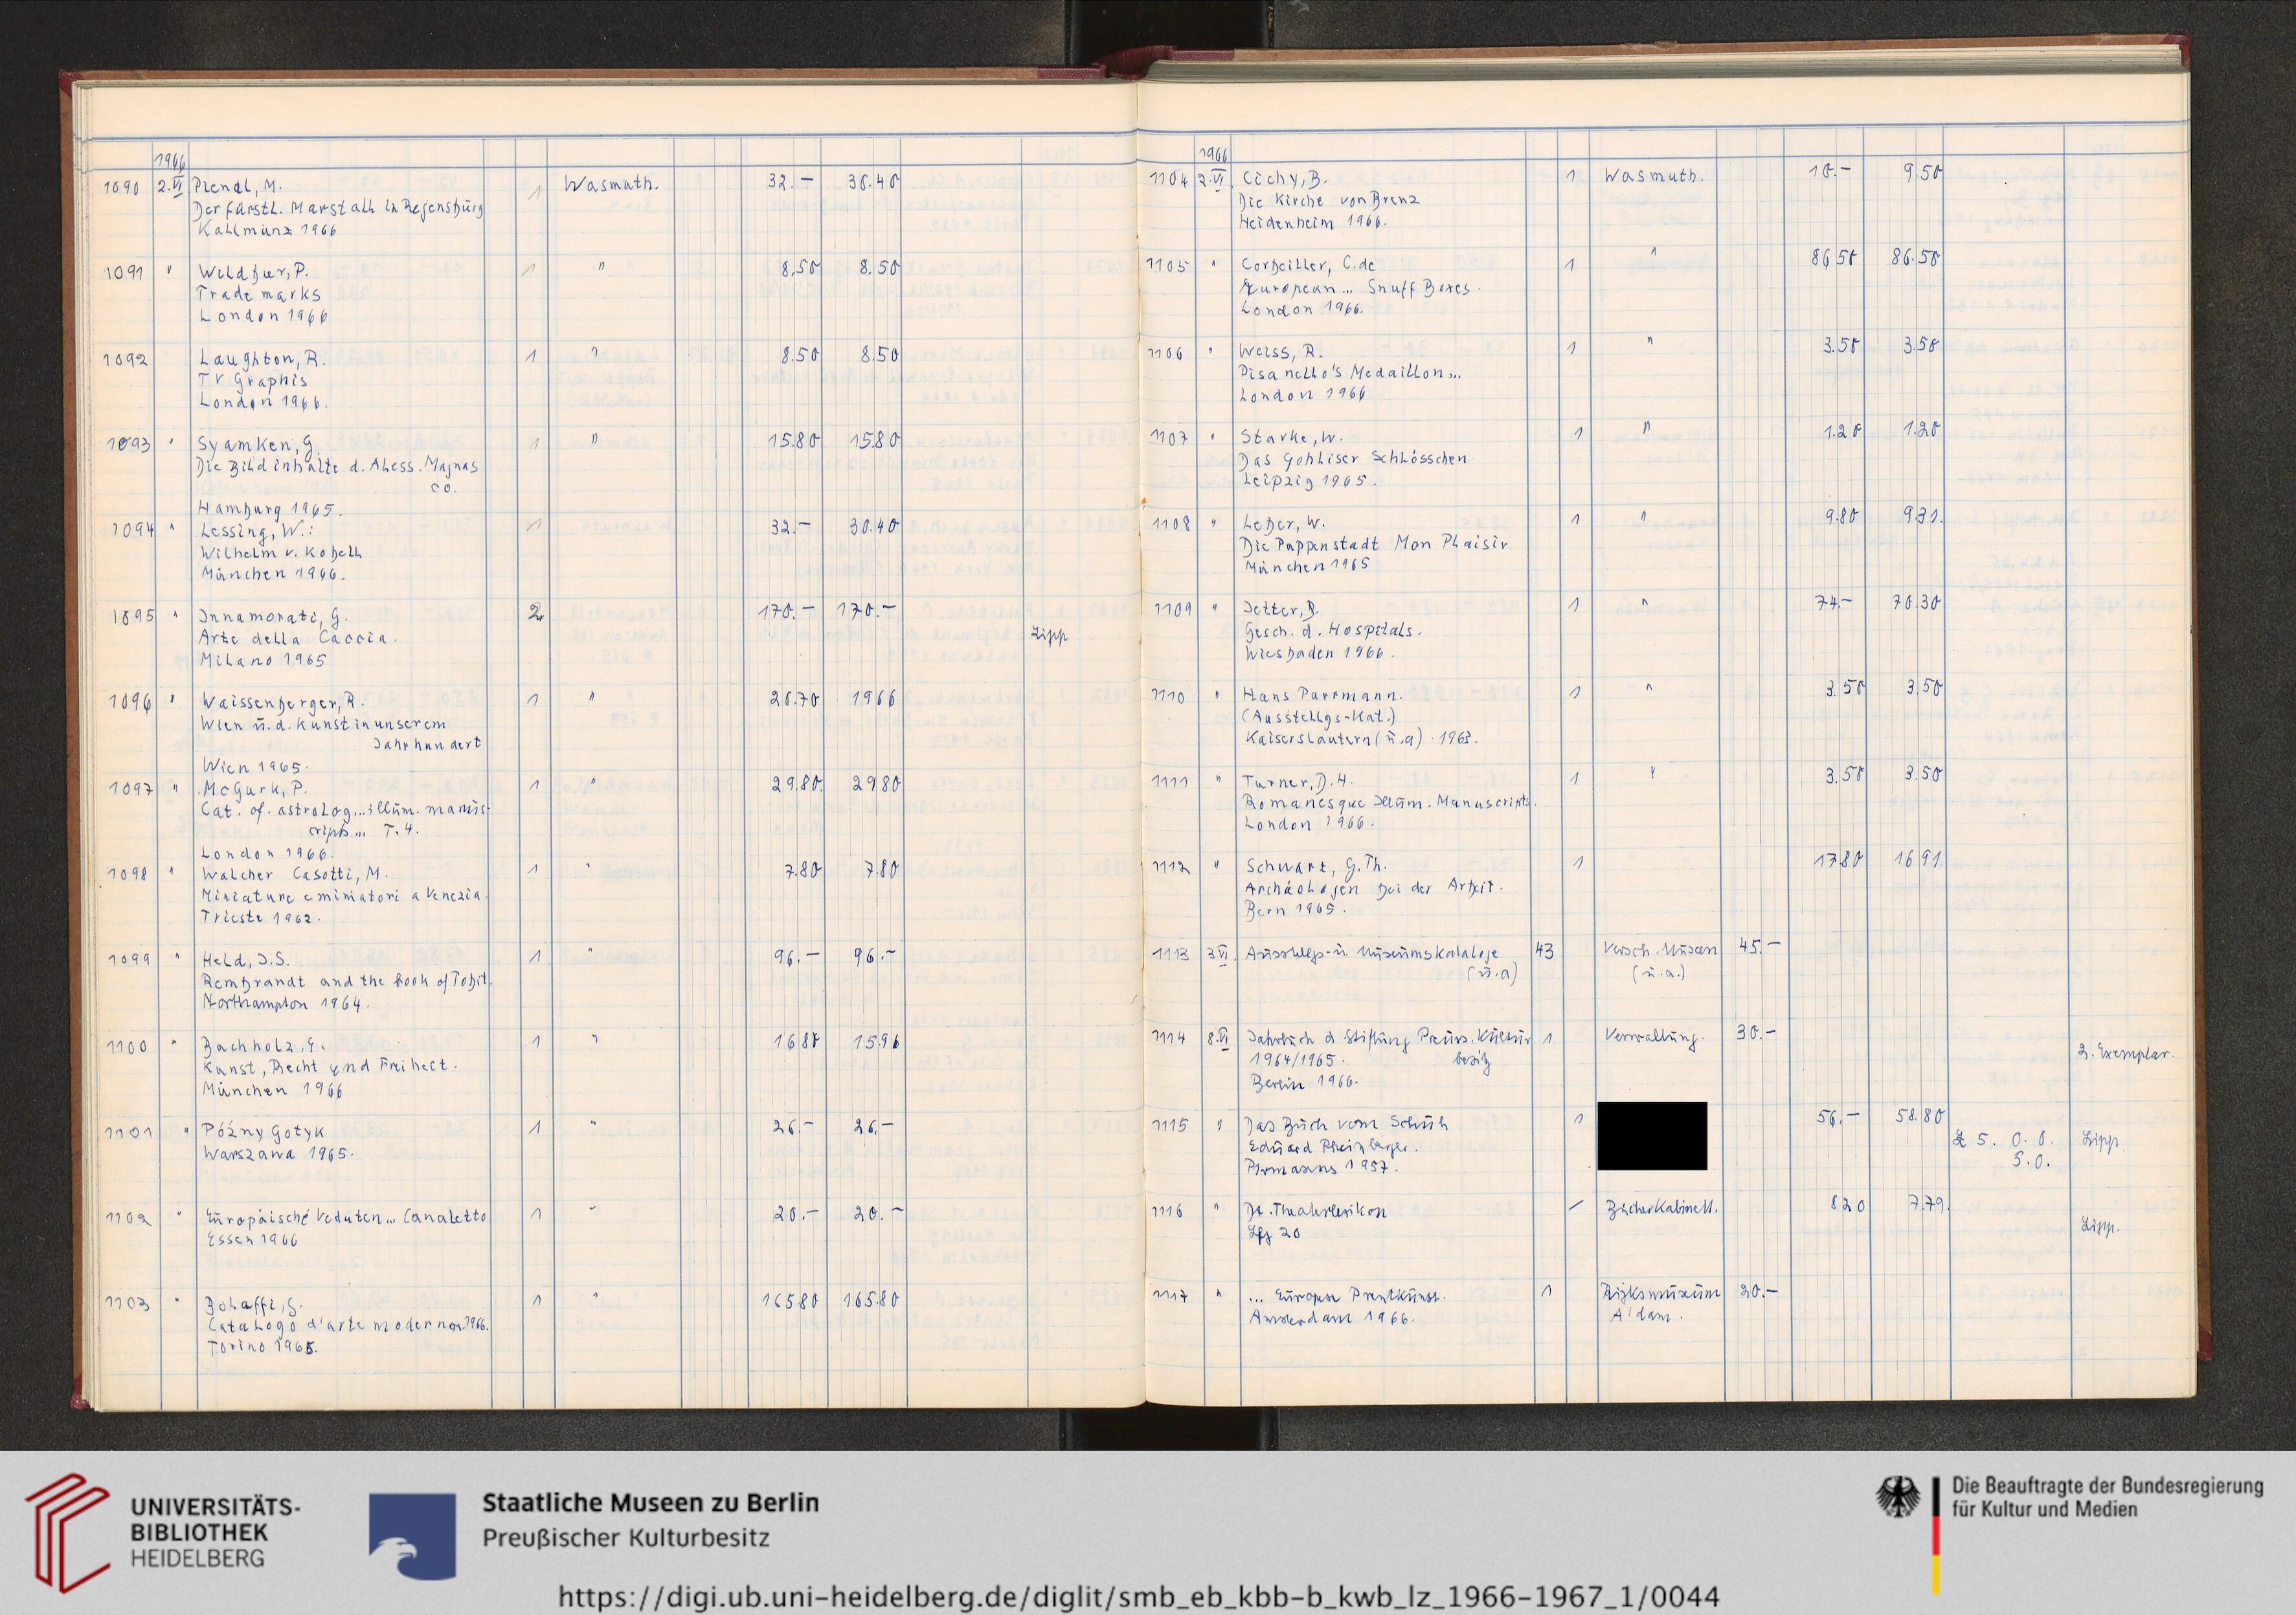 1966
1090 2.VI Piendl, M. 1 Wasmuth. 32.– 30.40
Der fürstl. Marstall in Regensburg
Kallmünz 1966
1091 " Wildbur, P. 1 " 8.50 8.50
Trade marks
London 1966
1092 Laughton, R. 1 " 8.50 8.50
TV Graphis
London 1966.
1093 " Syamken, G. 1 " 15.80 15.80
Die Bildinhalte d. Aless. Magnas
co.
Hamburg 1965.
1094 " Lessing, W.: 1 32.– 30.40
Wilhelm v. Kobell
München 1966.
1095 " Innamorati, G. 2 170.– 170.–
Arte della Caccia. Lipp
Milano 1965
1096 " Waissenberger, R. 1 " 20.70 1966
Wien u. d. Kunst in unserem
Jahrhundert
Wien 1965.
1097 " McGurk, P. 1 " 29.80 29.80
Cat. of. astrolog... illum. manus-
cripts... T. 4.
London 1966.
1098 " Walcher Casotti, M. 1 " 7.80 7.80
Miniature e miniatori a Venezia.
Trieste 1962.
1099 " Held, J.S. 1 " 96.– 96.–
Rembrandt and the book of Tobit.
Northampton 1964.
1100 " Buchholz, G. 1 " 16.80 15.96
Kunst, Recht und Freiheit.
München 1966
1101 " Późny Gotyk 1 " 26.– 26.–
Warszawa 1965.
1102 " Europäische Veduten... Canaletto 1 " 20.– 20.–
Essen 1966
1103 " Bolaffi, G. 1 " 165.80 165.80
Catalogo d'arte moderna. 1966.
Torino 1965.
1966
1104 2.VI. Cichy, B. 1 Wasmuth. 10.– 9.50
Die Kirche von Brenz
Heidenheim 1966.
1105 " Corbeiller, C. de 1 " 86.50 86.50
European... Snuff Boxes.
London 1966.
1106 " Weiss, R. 1 " 3.50 3.50
Pisanello's Medaillon...
London 1966
1107 " Starke, W. 1 " 1.20 1.20
Das Gohliser Schlösschen
Leipzig 1965.
1108 " Leber, W. 1 " 9.80 9.31.
Die Puppenstadt Mon Plaisir
München 1965
1109 " Jetter, D. 1 " 74.– 70.30
Gesch. d. Hospitals.
Wiesbaden 1966.
1110 " Hans Purrmann. 1 " 3.50 3.50
(Ausstellgs-Kat.)
Kaiserslautern (u.a) 1963.
1111 " Turner, D.H. 1 " 3.50 3.50
Romanesque Illum. Manuscripts.
London 1966.
1112 " Schwarz, G. Th. 1 17.80 16.91
Archäologen bei der Arbeit.
Bern 1965.
1113 3.VI. Ausstellgs- u. Museumskataloge 43 Versch. Museen 45.–
(u.a) (u.a.)
1114 8.VI Jahrbuch d Stiftung Preuss. Kultur 1 Verwaltung. 30.–
1964/1965. besitz 2. Exemplar.
Berlin 1966.
1115 " Das Buch vom Schuh 1 56.– 58.80
Eduard Rheinberger. Lipp
Pirmasens 1957.
1116 " Dt. Theaterlexikon / Bücherkabinett. 8 20 7.79.
Lfg 20 Lipp.
1117 " ... Europese Prentkunst. 1 Rijksmuseum 20.–
Amsterdam 1966. A'dam.
UNIVERSITÄTS-
BIBLIOTHEK
HEIDELBERG
Staatliche Museen zu Berlin
Preußischer Kulturbesitz
Die Beauftragte der Bundesregierung
für Kultur und Medien
https://digi.ub.uni-heidelberg.de/diglit/smb_eb_kbb-b_kwb_lz_1966-1967_1/0044